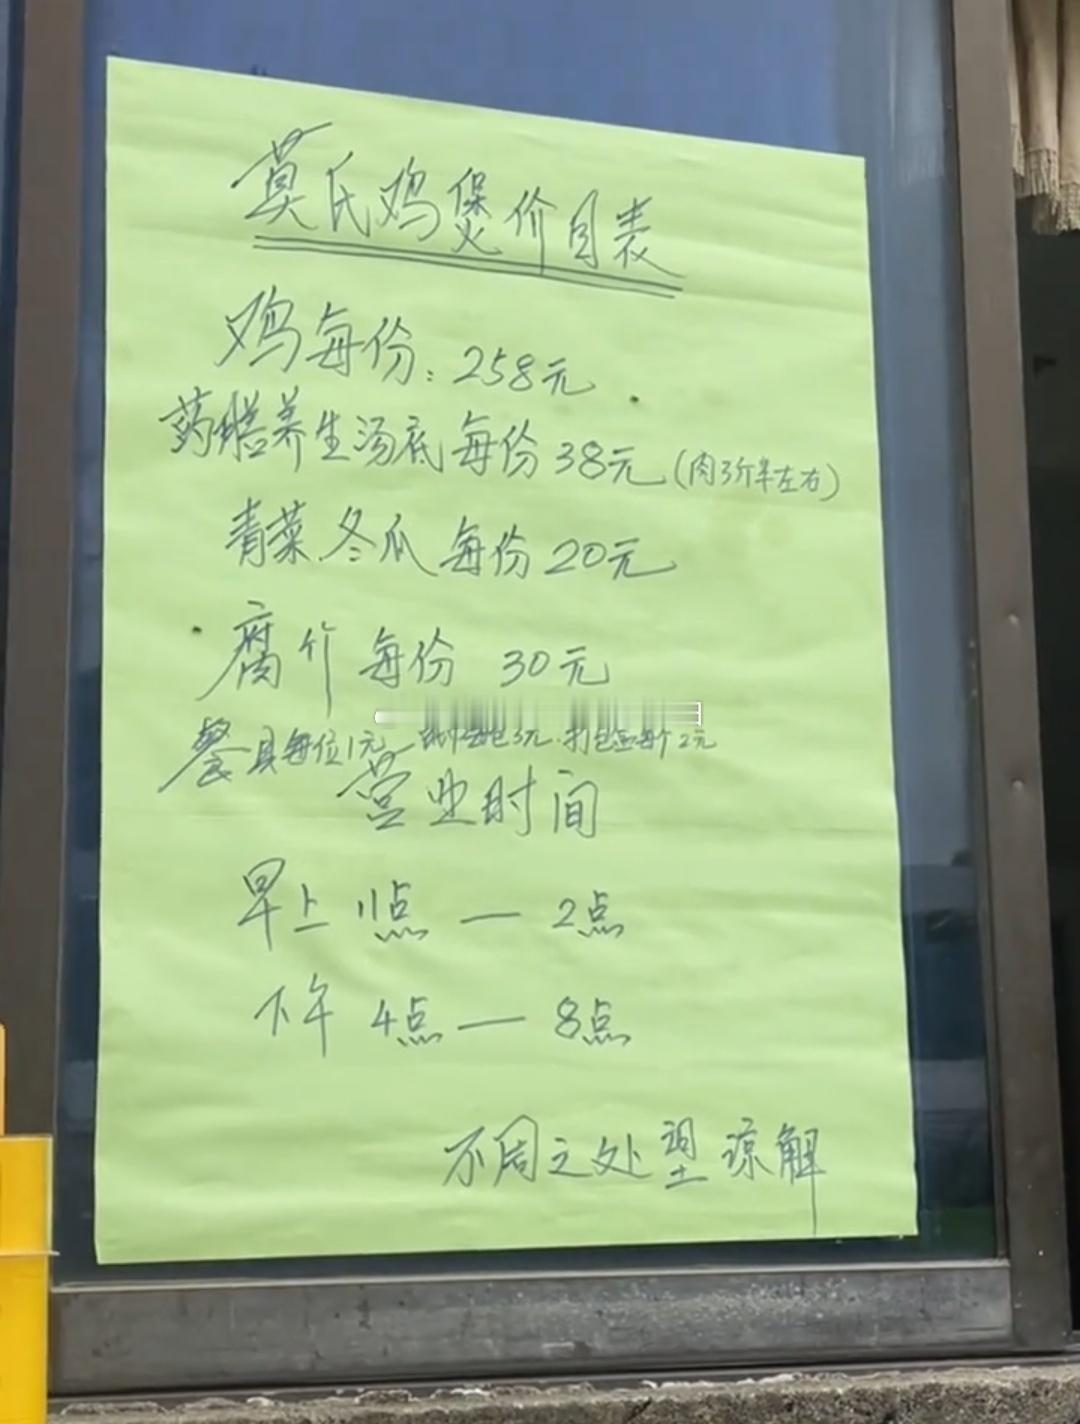 莫氏鸡煲价目表
鸡每份：258元
药膳养生汤底每份38元（肉3斤半左右）
青菜.冬瓜每份20元
腐竹 每份 30元
餐具每位1元 包3元.打包盒每个2元
营业时间
早上 11点 — 2点
下午 4点 — 8点
不周之处望谅解